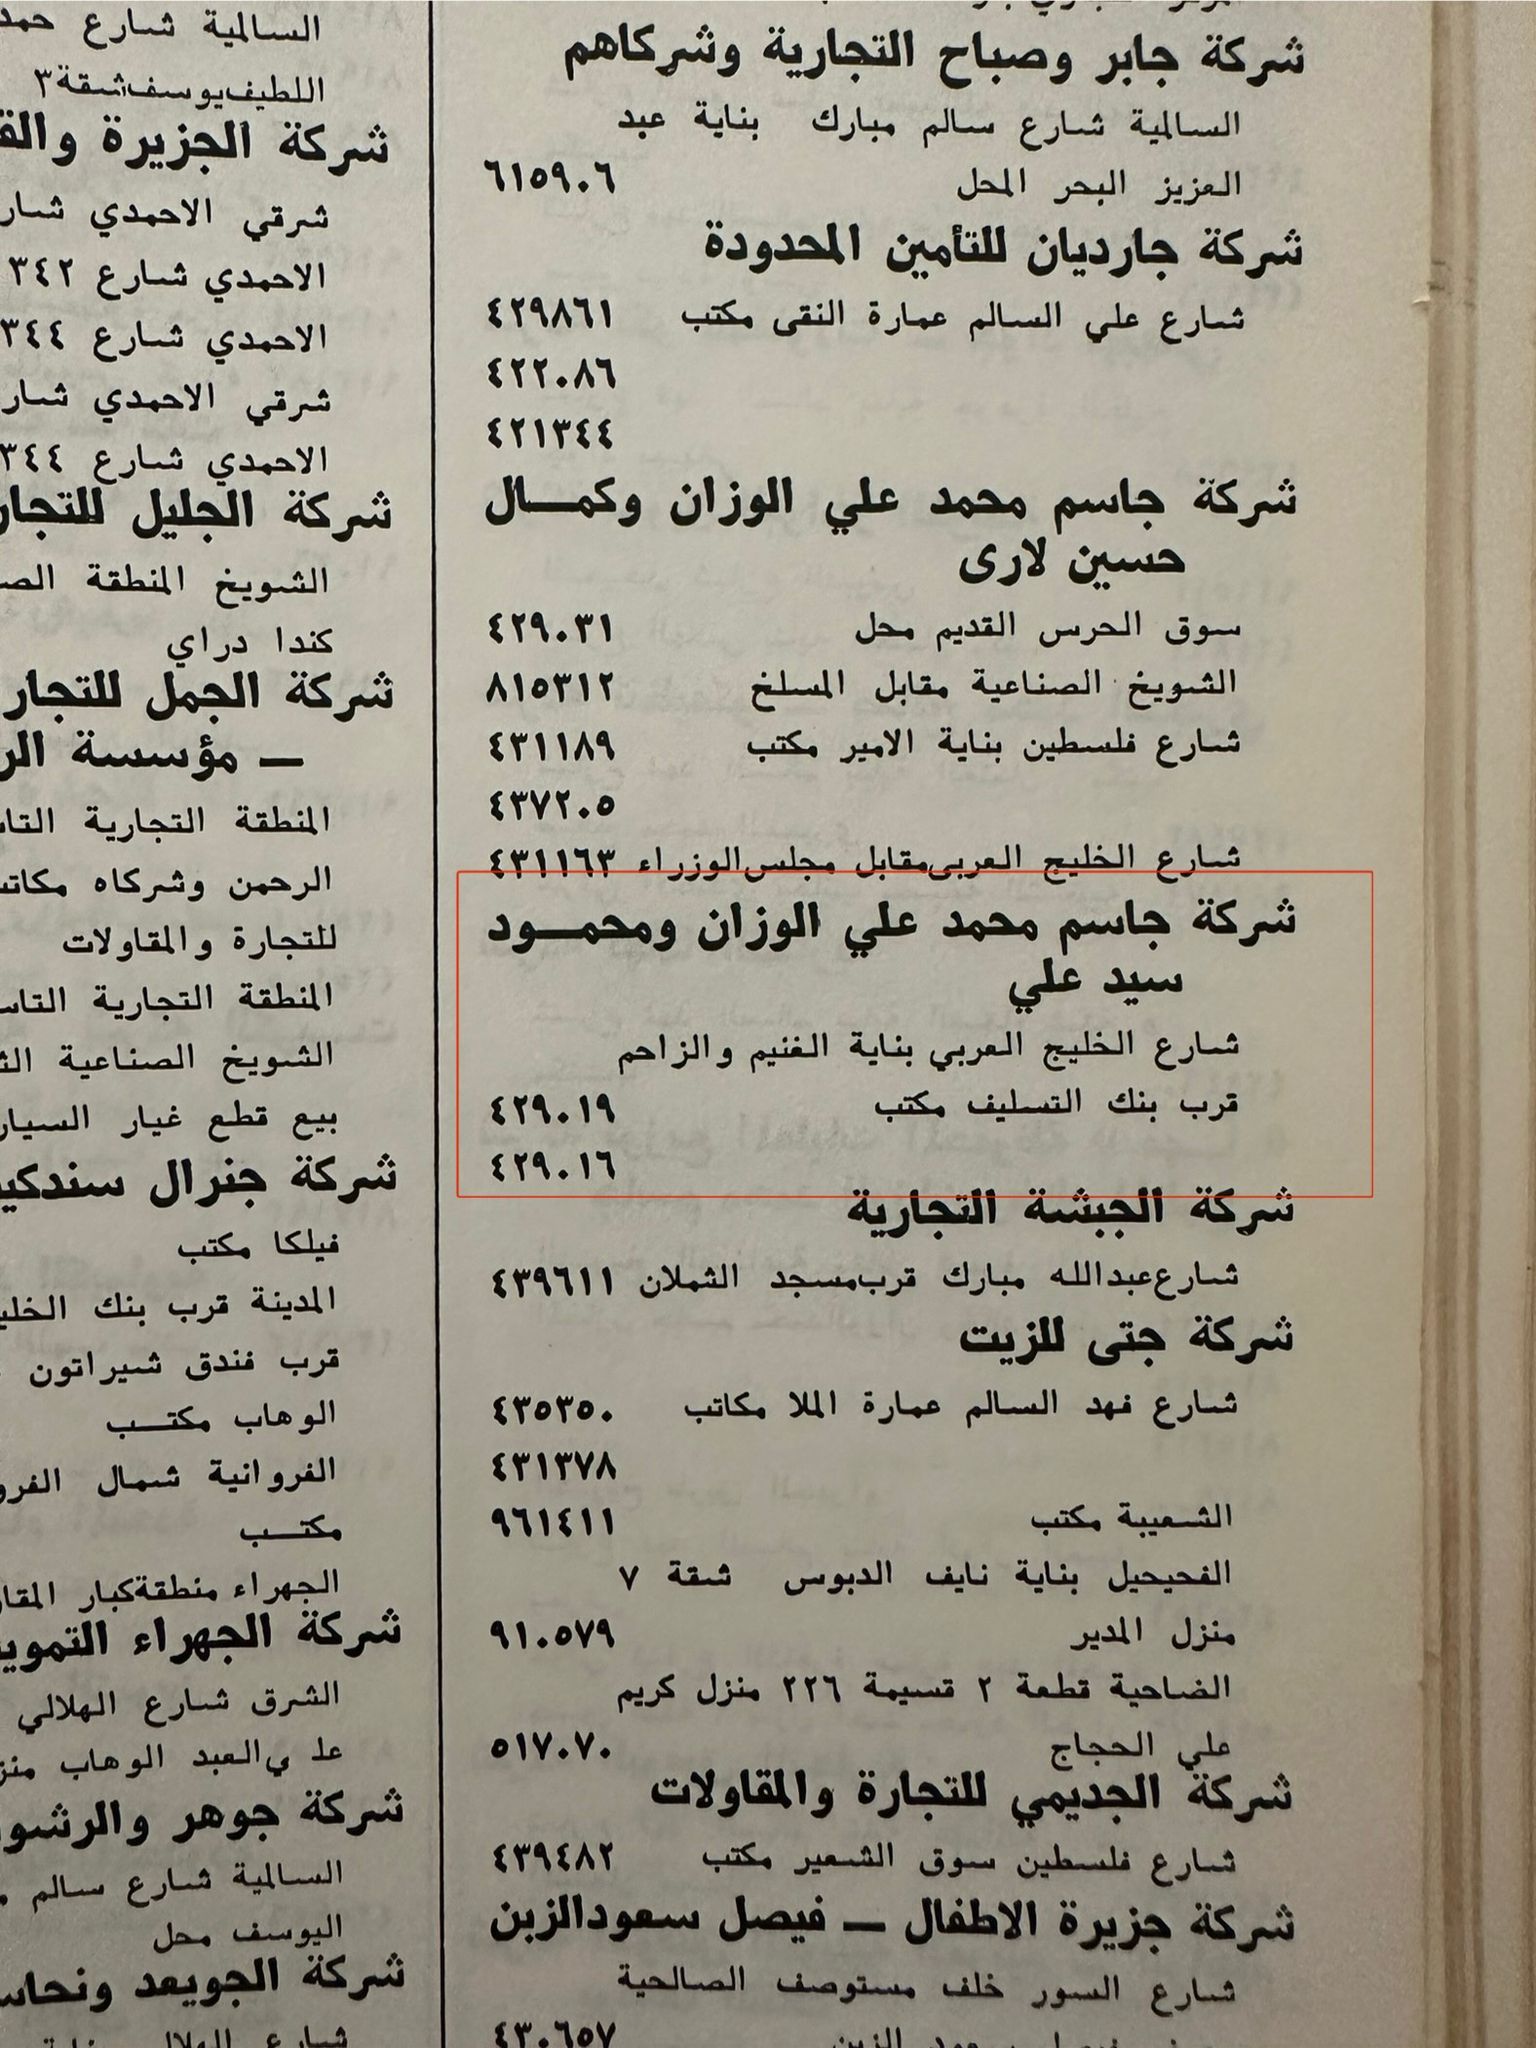 شركة جابر وصباح التجارية وشركاهم
السالمية شارع سالم مبارك بناية عبد
العزيز البحر المحل ٦١٥٩٠٦
شركة جارديان للتأمين المحدودة
شارع علي السالم عمارة النقى مكتب ٤٢٩٨٦١
٤٢٢٠٨٦
٤٢١٣٤٤
شركة جاسم محمد علي الوزان وكمـــال
حسين لارى
سوق الحرس القديم محل ٤٢٩٠٣١
الشويخ الصناعية مقابل المسلخ ٨١٥٣١٢
شارع فلسطين بناية الامير مكتب ٤٣١١٨٩
٤٣٧٢٠٥
شارع الخليج العربى مقابل مجلس الوزراء ٤٣١١٦٣
شركة جاسم محمد علي الوزان ومحمـــود
سيد علي
شارع الخليج العربي بناية الغنيم والزاحم
قرب بنك التسليف مكتب ٤٢٩٠١٩
٤٢٩٠١٦
شركة الجبشة التجارية
شارع عبدالله مبارك قرب مسجد الشملان ٤٣٩٦١١
شركة جتى للزيت
شارع فهد السالم عمارة الملا مكاتب ٤٣٥٣٥٠
٤٣١٣٧٨
الشعيبة مكتب ٩٦١٤١١
الفحيحيل بناية نايف الدبوس شقة ٧
منزل المدير ٩١٠٥٧٩
الضاحية قطعة ٢ قسيمة ٢٢٦ منزل كريم
علي الحجاج ٥١٧٠٧٠
شركة الجديمي للتجارة والمقاولات
شارع فلسطين سوق الشعير مكتب ٤٣٩٤٨٢
شركة جزيرة الاطفال — فيصل سعود الزبن
شارع السور خلف مستوصف الصالحية
٤٣٠٦٥٧
السالمية شارع
اللطيف يوسف شقة ٣
شركة الجزيرة
شرقي الاحمدي
الاحمدي شارع ٣٤٢
الاحمدي شارع ٣٤٤
شرقي الاحمدي
الاحمدي شارع ٣٤٤
شركة الجليل
الشويخ المنطقة
كندا دراي
شركة الجمل
— مؤسسة
المنطقة التجارية
الرحمن وشركاه
للتجارة والمقاولات
المنطقة التجارية
الشويخ الصناعية
بيع قطع غيار
شركة جنرال
فيلكا مكتب
المدينة قرب بنك
قرب فندق شيراتون
الوهاب مكتـــب
الفروانية شمال
مكتـــب
الجهراء منطقة كبار
شركة الجهراء
الشرق شارع الهلالي
علي العبد الوهاب
شركة جوهر
السالمية شارع سالم
اليوسف محل
شركة الجويعد
شارع الهلالي